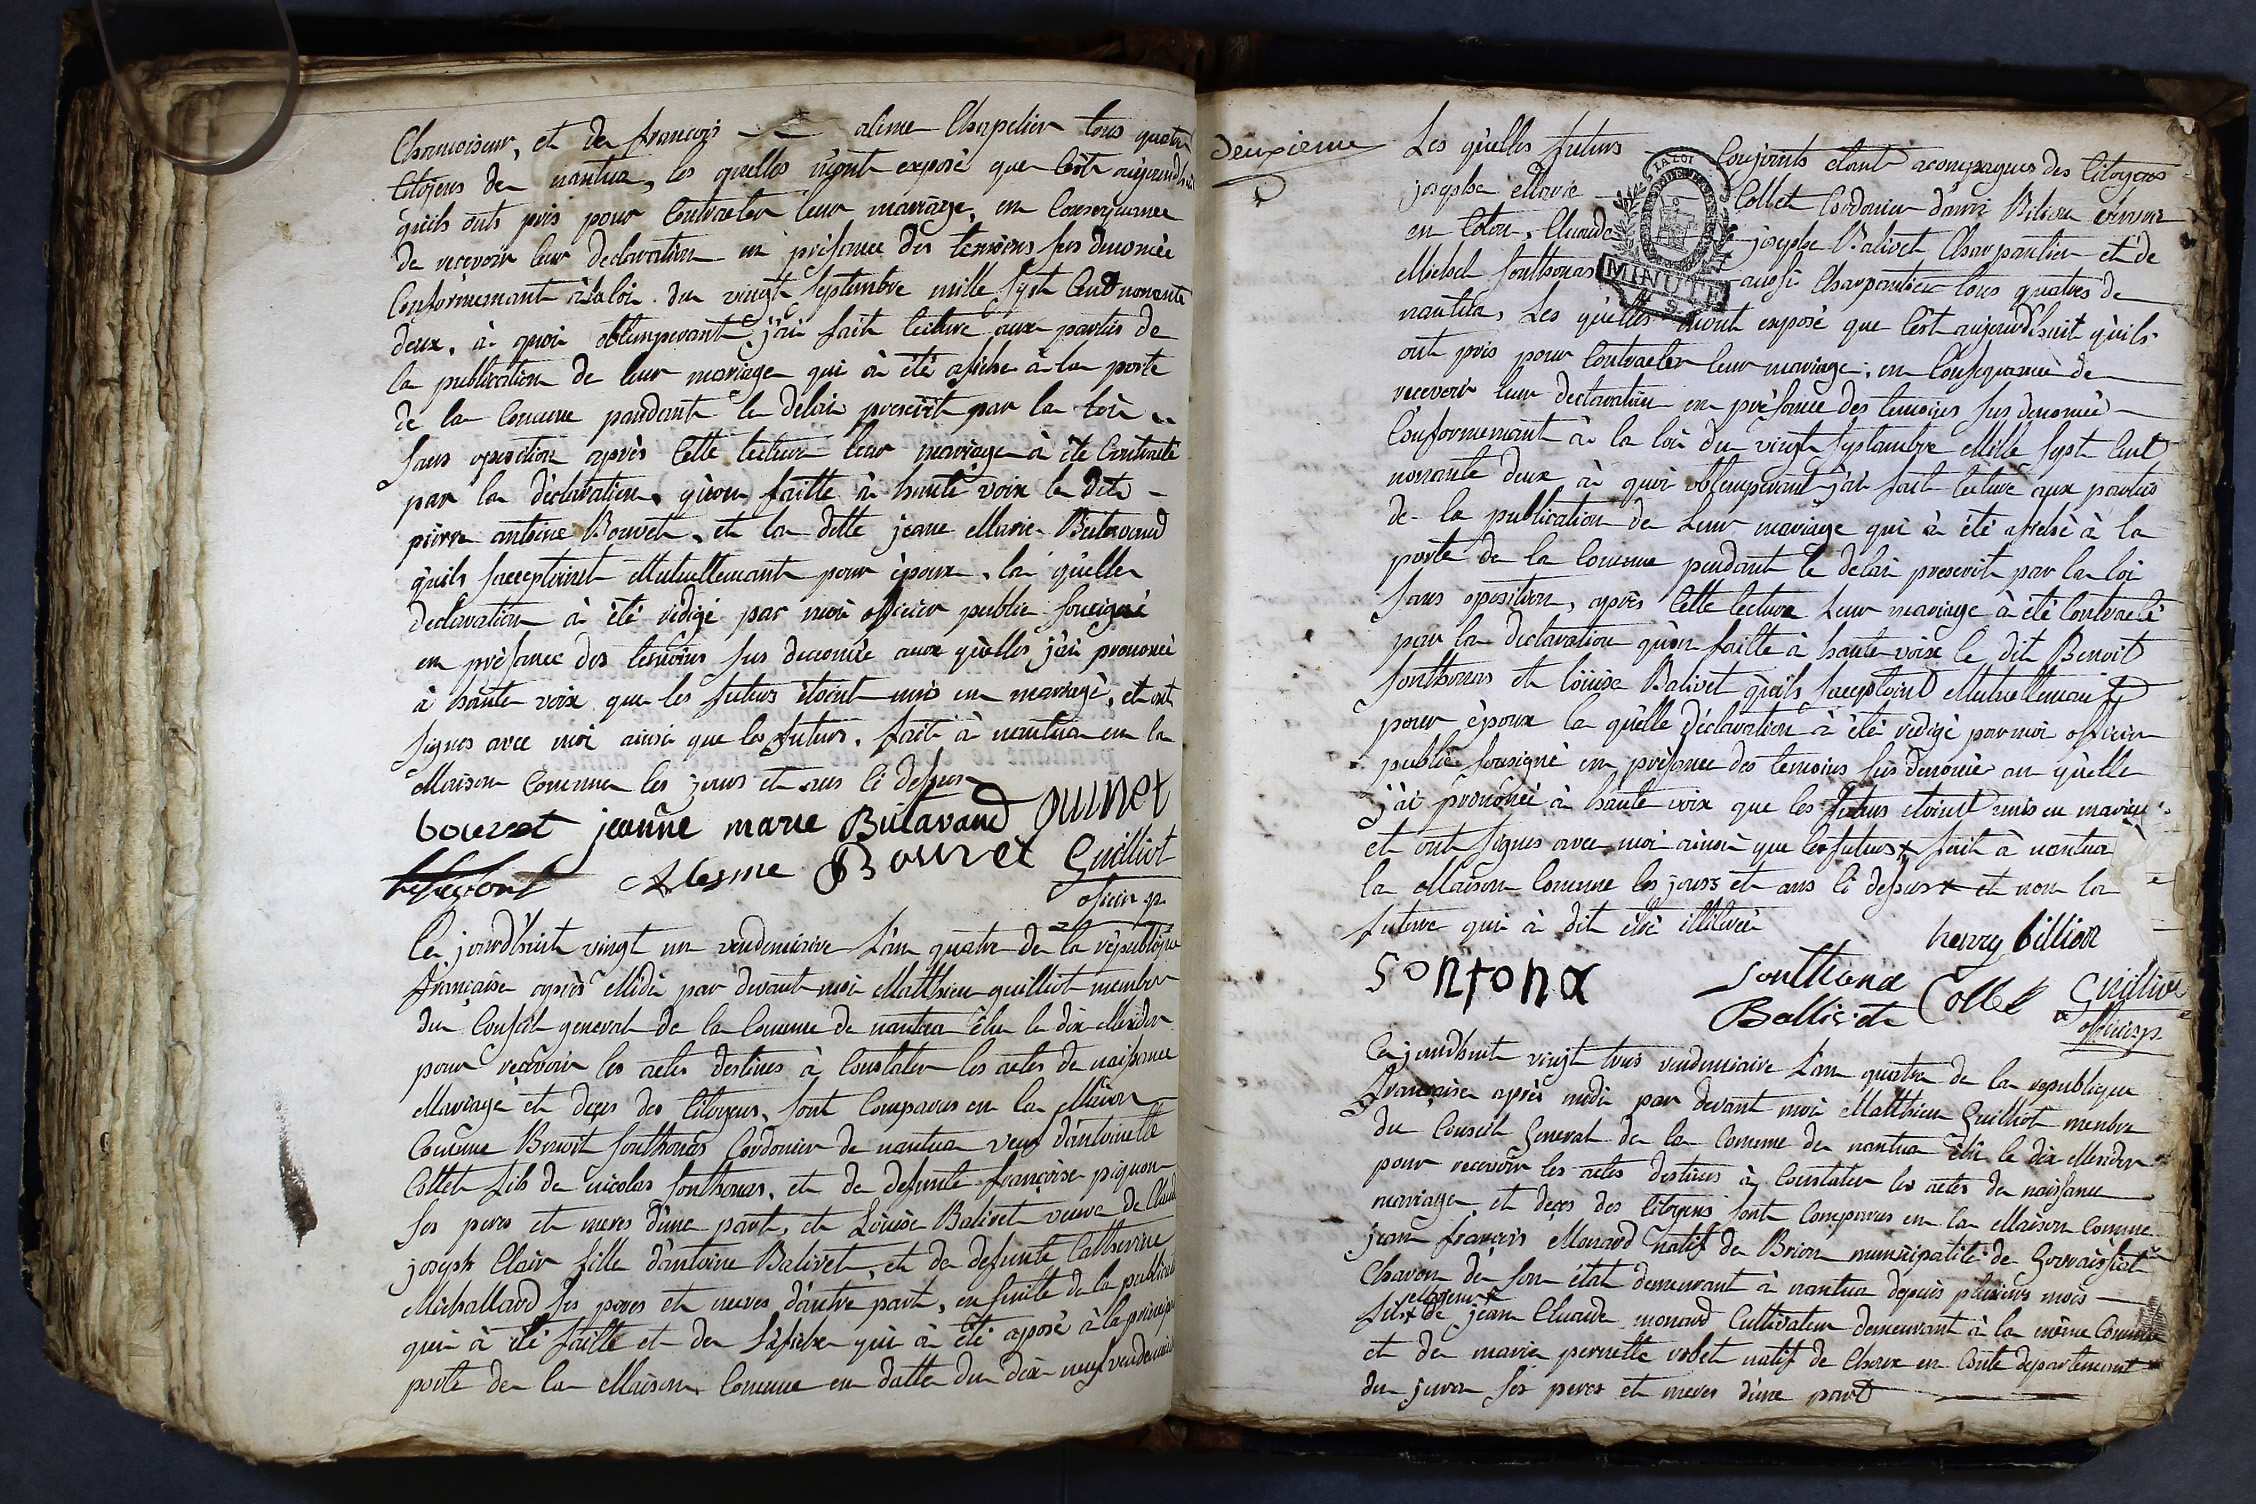 Chamoiseur, et de françois alème Chapelier tous quatre
Citoyens de nantua, les quelles m'ont exposé que c'est aujourd'hui
qu'ils onts pris pour Contracter leur mariage, en Consequance
de reçevoir leur declaration en présance des temoins sus denomée
Conformemant à la loi du vingt septembre mille sept Cent nonante
deux, à quoi obtemperant j'ai fait lecture aux partis de
la publication de leur mariage qui à été afiché à la porte
de la Comune pandant le delai prescrit par la loi
sans oposition après Cette lecture leur mariage à été Contracté
par la déclaration, qu'on faitte à haute voix le dit
pierre antoine Bouvet, et la ditte jeane Marie Butavand
qu'ils s'acceptoint Mutuellemant pour époux, la quelle
declaration à été redigé par moi officier public sousigné
en présance des temoins sus denomée aux quelles j'ai prononcé
à haute voix que les futurs étoint unis en mariage, et ont
signés avec moi ainsi que les futurs, fait à nantua en la
Maison Comune les jours et ans ci dessus
bouvet jeanne marie Butavand Ouinet
Alesme Bouvet Guilliot
oficier p.
Ce jourdhuit vingt un vendemiaire l'an quatre de la république
française après Midi par devant moi Matthieu guilliot membre
du Conseil general de la Comune de nantua élu le dix Messidor
pour reçevoir les actes destinés à Constater les actes de naissance
Mariage et deçes des Citoyens, sont Comparus en la Maison
Comune Benoit sonthonas Cordonier de nantua veuf d'antoinette
Collet fils de nicolas sonthonas, et de defunte françoise piquon
ses peres et meres d'une part, et Louise Balivet veuve de Claude
joseph Clair fille d'antoine Balivet, et de defunte Catherine
Michallard ses peres et meres d'autre part, en suitte de la publication
qui à été faitte et de l'afiche qui à été aposé à la principale
porte de la Maison Comune en datte du dix neuf vendemiaire
deuxieme
Les quelles futurs Conjoints étant acompagnés des Citoyens
josephe Marie Collet Cordonier d'anri Bilion
en Coton, Cluaude josephe Balivet Charpantier et de
Michel sonthonas aussi Charpantier tous quatres de
LA LOI
MINUTE
nantua, Les quelles m'ont exposé que c'est aujourd'huit qu'ils
ont pris pour Contracter leur mariage, en Consequance de
recevoir leur declaration en présance des temoins sus denomée
Conformemant à la loi du vingt septambre Mille sept Cent
nonante deux à quoi obtemperant j'ai fait lecture aux partis
de la publication de Leur mariage qui à été afiché à la
porte de la Comune pendant le delai prescrit par la loi
sans oposition, après Cette lecture Leur mariage à été Contracté
par la declaration qu'on faitte à haute voix le dit Benoit
sonthonas et louise Balivet qu'ils s'acceptoint Mutuellemant
pour époux la quelle déclaration à été redigé par moi officier
public sousigné en présance des temoins sus denomée au quelle
j'ai prononcé à haute voix que les futurs etoint unis en mariage
et ont signés avec moi ainsi que les futurs fait à nantua
la Maison Comune les jours et ans ci dessus et non la
future qui à dit etre illiterée
henry billion
Sontona Sonthona
Ballivet Collet Guilliot
officier p.
Ce jourdhuit vingt trois vendemiaire l'an quatre de la republique
française après midi par devant moi Matthieu Guilliot membre
du Conseil General de la Comune de nantua élu le dix Messidor
pour recevoir les actes destinés à Constater les actes de naissance
mariage, et deçes des Citoyens sont Comparus en la Maison Comune
jean françois Monard natif de Brion municipalité de
Charon de son état demeurant à nantua depuis plusieurs mois
fils de jean Cluaude monard Cultivateur demeurant à la même Comune
et de marie pernette vobet natif de Charix en Conte departement
du jura ses peres et meres d'une part